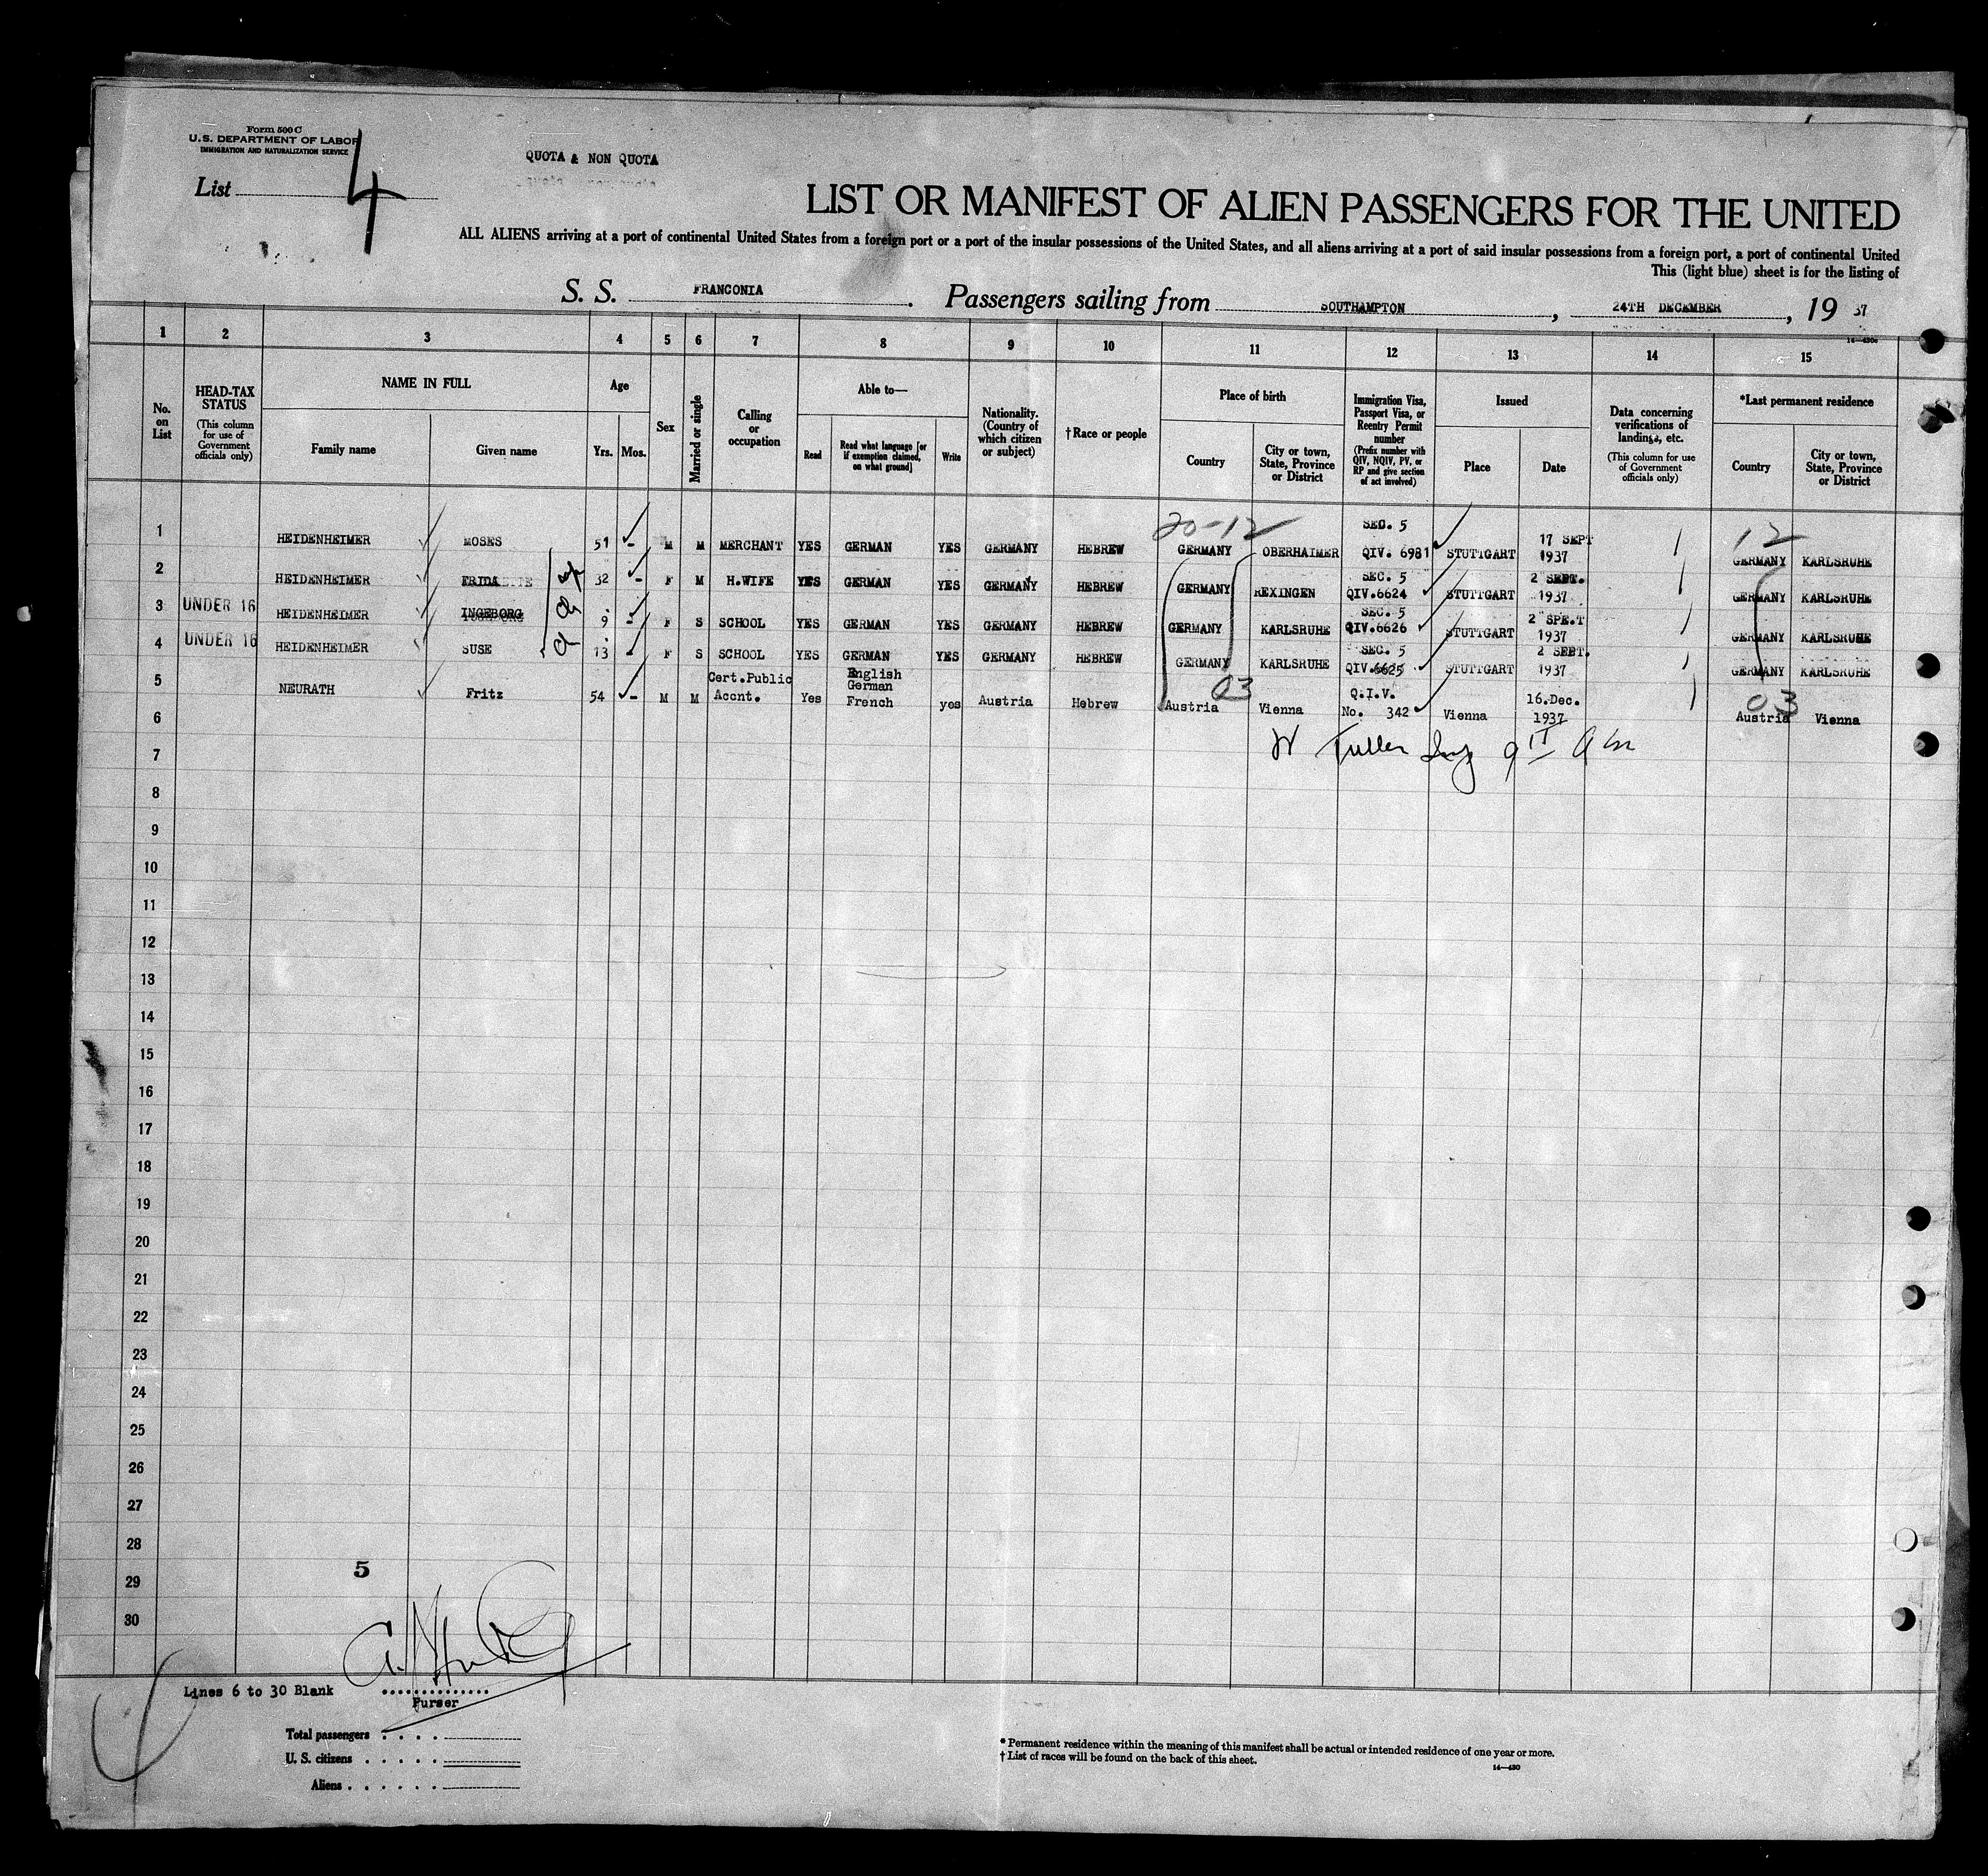 Form 500 C
U.S. DEPARTMENT OF LABOR
IMMIGRATION AND NATURALIZATION SERVICE
List 4
QUOTA & NON QUOTA
LIST OR MANIFEST OF ALIEN PASSENGERS FOR THE UNITED
ALL ALIENS arriving at a port of continental United States from a foreign port or a port of the insular possessions of the United States, and all aliens arriving at a port of said insular possessions from a foreign port, a port of continental United
This (light blue) sheet is for the listing of
S. S. FRANCONIA. Passengers sailing from SOUTHAMPTON, 24TH DECEMBER, 19 37
1 2 3 4 5 6 7 8 9 10 11 12 13 14 15
No. on List
HEAD-TAX STATUS (This column for use of Government officials only)
NAME IN FULL
Family name
Given name
Age
Yrs.
Mos.
Sex
Married or single
Calling or occupation
Able to—
Read
Read what language [or if exemption claimed, on what ground]
Write
Nationality. (Country of which citizen or subject)
†Race or people
Place of birth
Country
City or town, State, Province or District
Immigration Visa, Passport Visa, or Reentry Permit number (Prefix number with QIV, NQIV, PV, or RP and give section of act involved)
Issued
Place
Date
Data concerning verifications of landings, etc. (This column for use of Government officials only)
*Last permanent residence
Country
City or town, State, Province or District
20-12 12
1 HEIDENHEIMER MOSES 51 - M M MERCHANT YES GERMAN YES GERMANY HEBREW GERMANY OBERHAIMER SEC. 5 QIV. 6981 STUTTGART 17 SEPT 1937 GERMANY KARLSRUHE
2 HEIDENHEIMER FRIDA 32 - F M H.WIFE YES GERMAN YES GERMANY HEBREW GERMANY REXINGEN SEC. 5 QIV.6624 STUTTGART 2 SEPT. 1937 GERMANY KARLSRUHE
3 UNDER 16 HEIDENHEIMER INGEBORG 9 - F S SCHOOL YES GERMAN YES GERMANY HEBREW GERMANY KARLSRUHE SEC. 5 QIV.6626 STUTTGART 2 SPE.T 1937 GERMANY KARLSRUHE
4 UNDER 16 HEIDENHEIMER SUSE 13 - F S SCHOOL YES GERMAN YES GERMANY HEBREW GERMANY KARLSRUHE SEC. 5 QIV.6625 STUTTGART 2 SEPT. 1937 GERMANY KARLSRUHE
5 NEURATH Fritz 54 - M M Cert.Public Accnt. Yes English German French yes Austria Hebrew 03 Austria Vienna Q.I.V. No. 342 Vienna 16.Dec. 1937 03 Austria Vienna
6
7
8
9
10
11
12
13
14
15
16
17
18
19
20
21
22
23
24
25
26
27
28
29
30
5
Lines 6 to 30 Blank
Purser
Total passengers
U. S. citizens
Aliens
* Permanent residence within the meaning of this manifest shall be actual or intended residence of one year or more.
† List of races will be found on the back of this sheet.
14—430